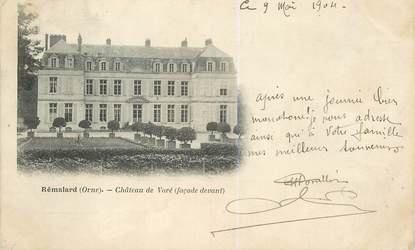 Ce 9 Mai 1904.
Après une journée bien
monotone, je vous adresse
ainsi qu'à votre famille
mes meilleurs souvenirs
Rémalard (Orne). — Château de Voré (façade devant)